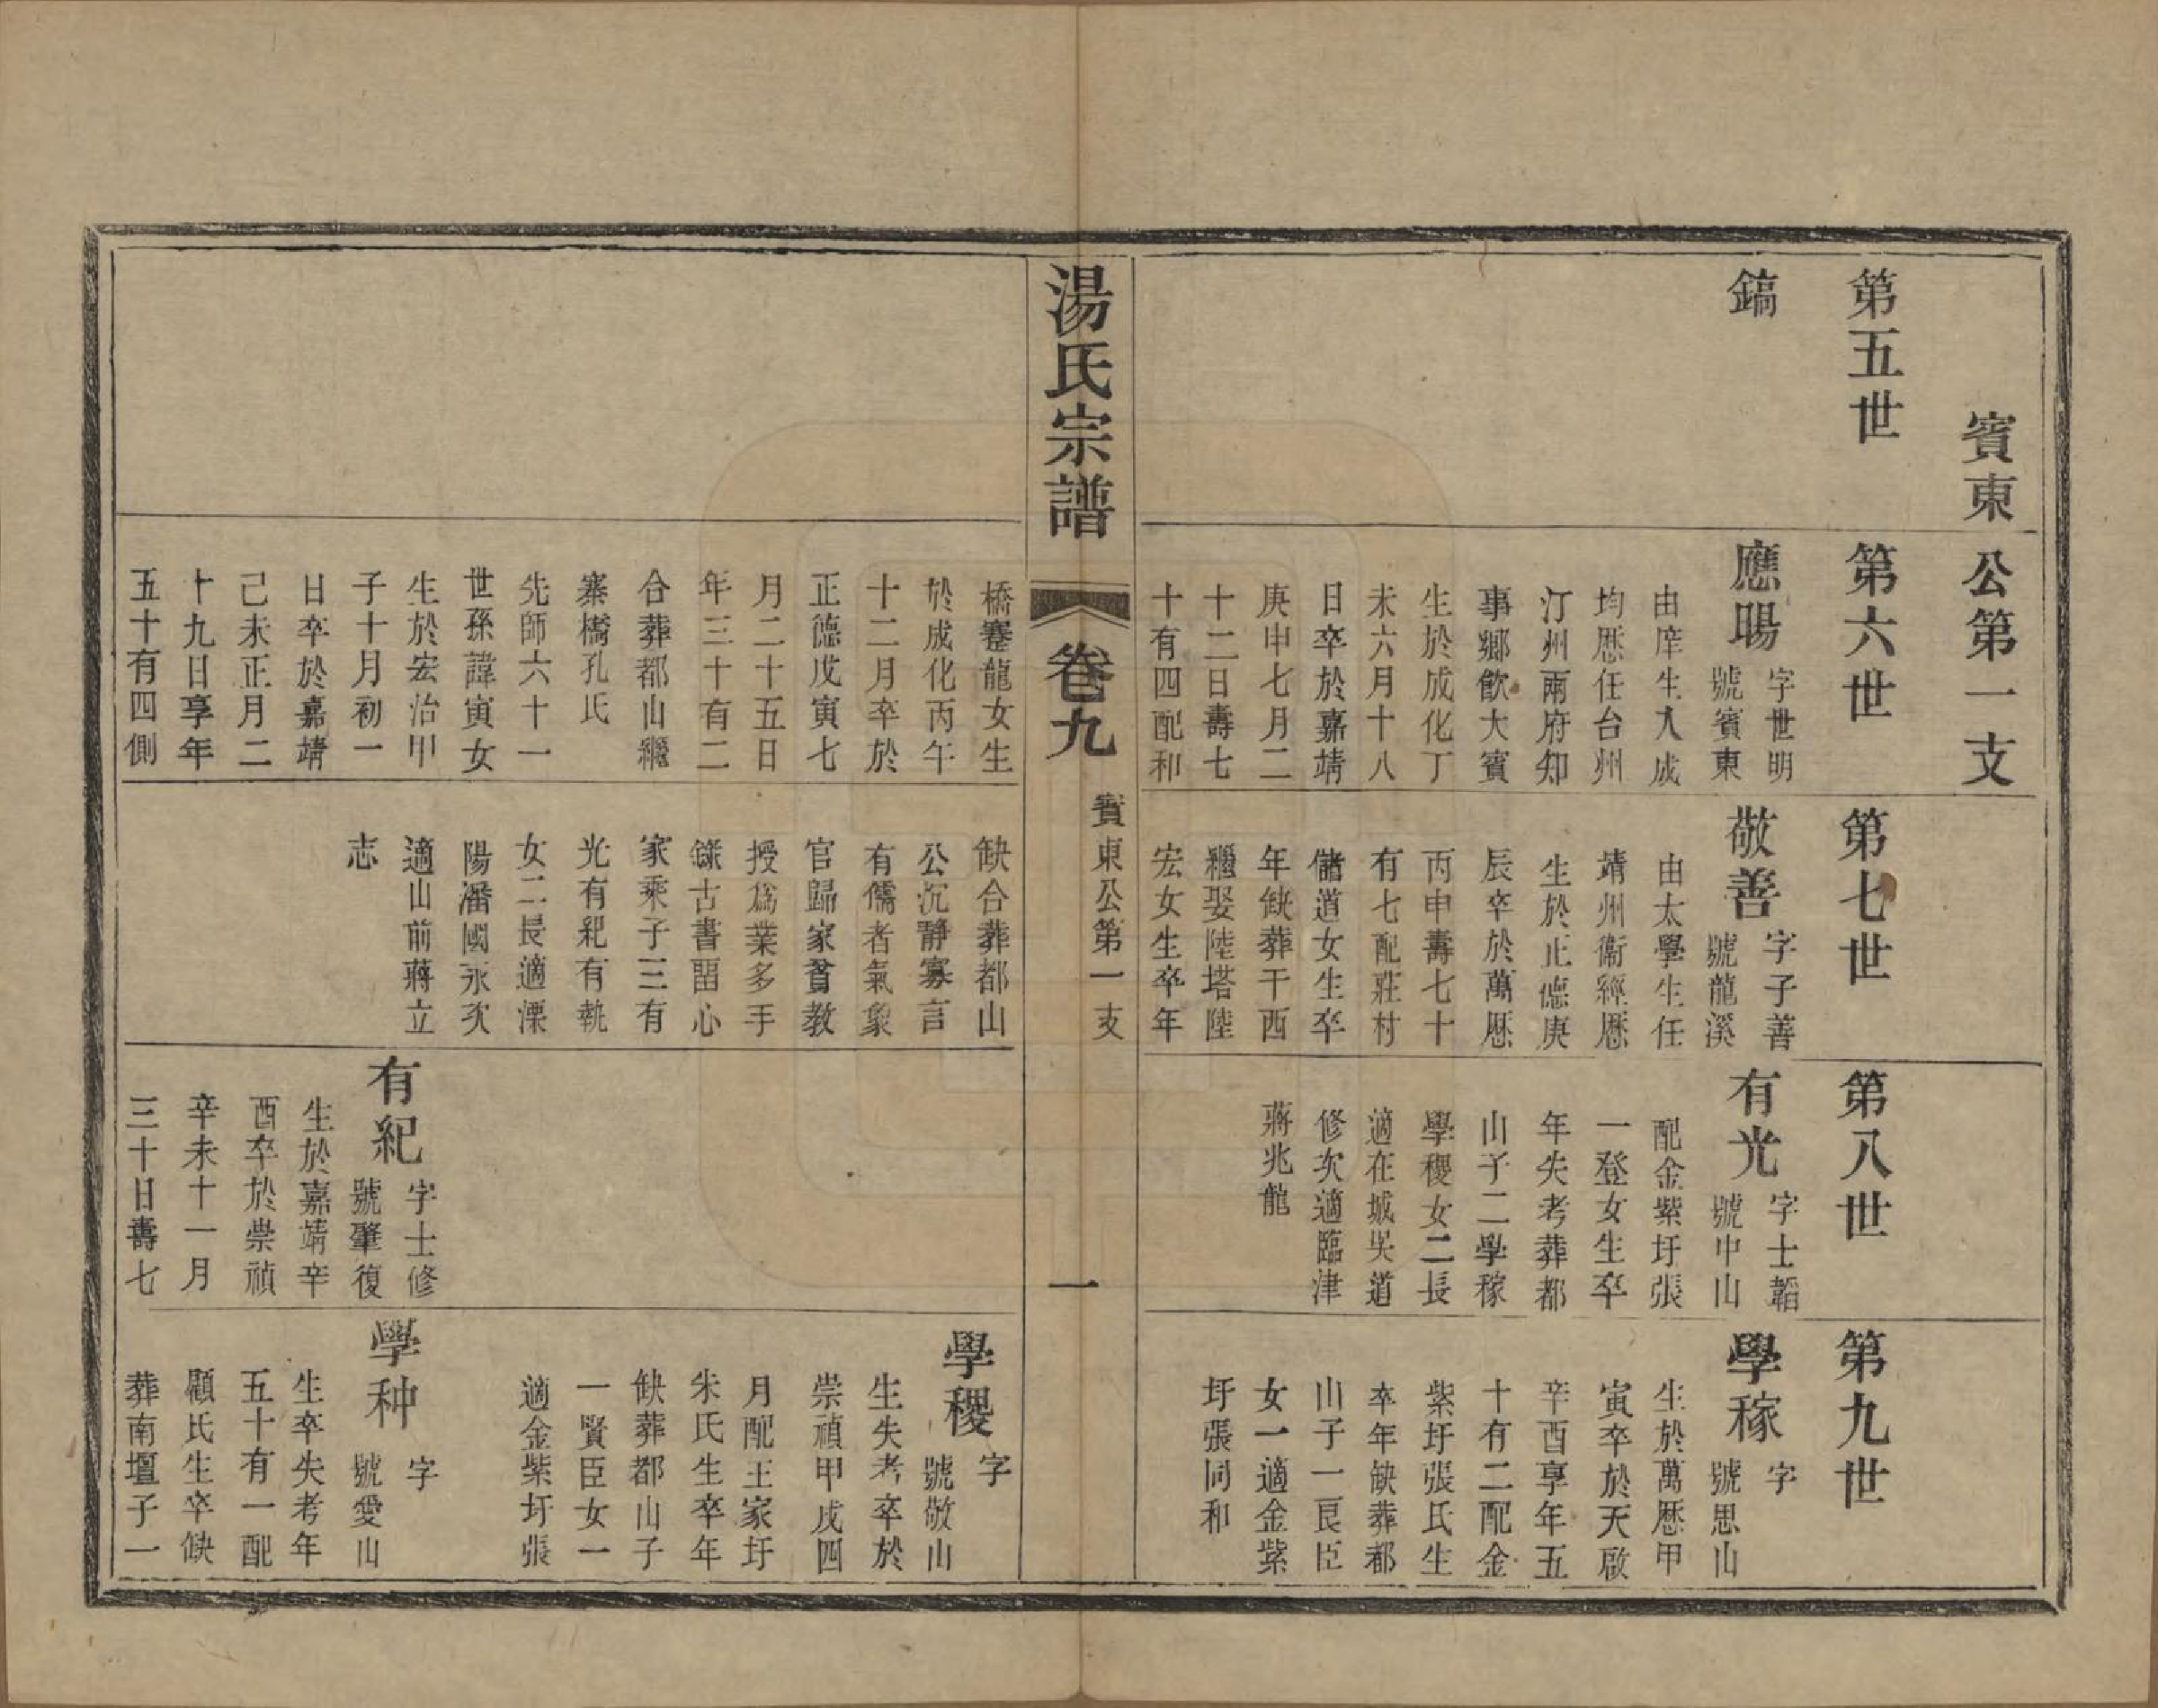 賓東公第一支
第五世
鎬
第六世
應暘
字世明
號賓東
由庠生入成
均歷任台州
汀州兩府知
事鄉飲大賓
生於成化丁
未六月十八
日卒於嘉靖
庚申七月二
十二日壽七
十有四配和
第七世
敬善
字子善
號龍溪
由太學生任
靖州衞經歷
生於正德庚
辰卒於萬歷
丙申壽七十
有七配莊村
儲道女生卒
年缺葬干西
繼娶陸塔陸
宏女生卒年
第八世
有光
字士韜
號中山
配金紫圩張
一登女生卒
年失考葬都
山子二學稼
學稷女二長
適在城吳道
修次適臨津
蔣兆龍
第九世
學稼
字
號思山
生於萬歷甲
寅卒於天啟
辛酉享年五
十有二配金
紫圩張氏生
卒年缺葬都
山子一良臣
女一適金紫
圩張同和
湯氏宗譜
卷九
賓東公第一支
一
橋蹇龍女生
於成化丙午
十二月卒於
正德戊寅七
月二十五日
年三十有二
合葬都山繼
寨橋孔氏
先師六十一
世孫諱寅女
生於宏治甲
子十月初一
日卒於嘉靖
己未正月二
十九日享年
五十有四側
缺合葬都山
公沉靜寡言
有儒者氣象
官歸家貧教
授爲業多手
錄古書畱心
家乘子三有
光有紀有執
女二長適溧
陽潘國永次
適山前蔣立
志
有紀
字士修
號肇復
生於嘉靖辛
酉卒於崇禎
辛未十一月
三十日壽七
學稷
字
號敬山
生失考卒於
崇禎甲戌四
月配王家圩
朱氏生卒年
缺葬都山子
一賢臣女一
適金紫圩張
學种
字
號愛山
生卒失考年
五十有一配
顧氏生卒缺
葬南壇子一